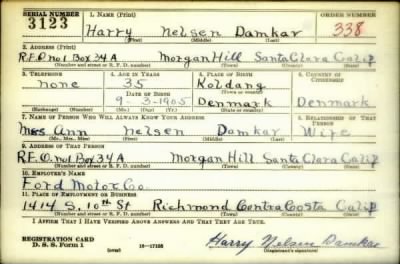 SERIAL NUMBER 1. NAME (Print) ORDER NUMBER
3123 Harry Nelsen Damkar 338
(First) (Middle) (Last)
2. ADDRESS (Print)
R.F.D. no1 Box 34A Morgan Hill Santa Clara Calif
(Number and street or R. F. D. number) (Town) (County) (State)
3. TELEPHONE 4. AGE IN YEARS 5. PLACE OF BIRTH 6. COUNTRY OF CITIZENSHIP
none 35 Koldang
DATE OF BIRTH (Town or county)
9-3-1905 Denmark Denmark
(Exchange) (Number) (Mo.) (Day) (Yr.) (State or country)
7. NAME OF PERSON WHO WILL ALWAYS KNOW YOUR ADDRESS 8. RELATIONSHIP OF THAT PERSON
Mrs Ann Nelsen Damkar Wife
(Mr., Mrs., Miss) (First) (Middle) (Last)
9. ADDRESS OF THAT PERSON
R.F.D. no1 Box 34A Morgan Hill Santa Clara Calif
(Number and street or R. F. D. number) (Town) (County) (State)
10. EMPLOYER'S NAME
Ford Motor Co.
11. PLACE OF EMPLOYMENT OR BUSINESS
1414 S. 10th St Richmond Contra Costa Calif
(Number and street or R. F. D. number) (Town) (County) (State)
I AFFIRM THAT I HAVE VERIFIED ABOVE ANSWERS AND THAT THEY ARE TRUE.
REGISTRATION CARD
D. S. S. Form 1 16—17105 Harry Nelsen Damkar